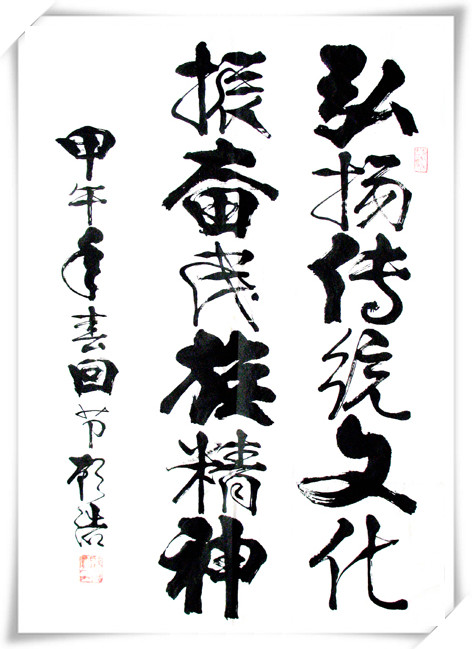 弘扬传统文化
振奋民族精神
甲午年春回节顾浩